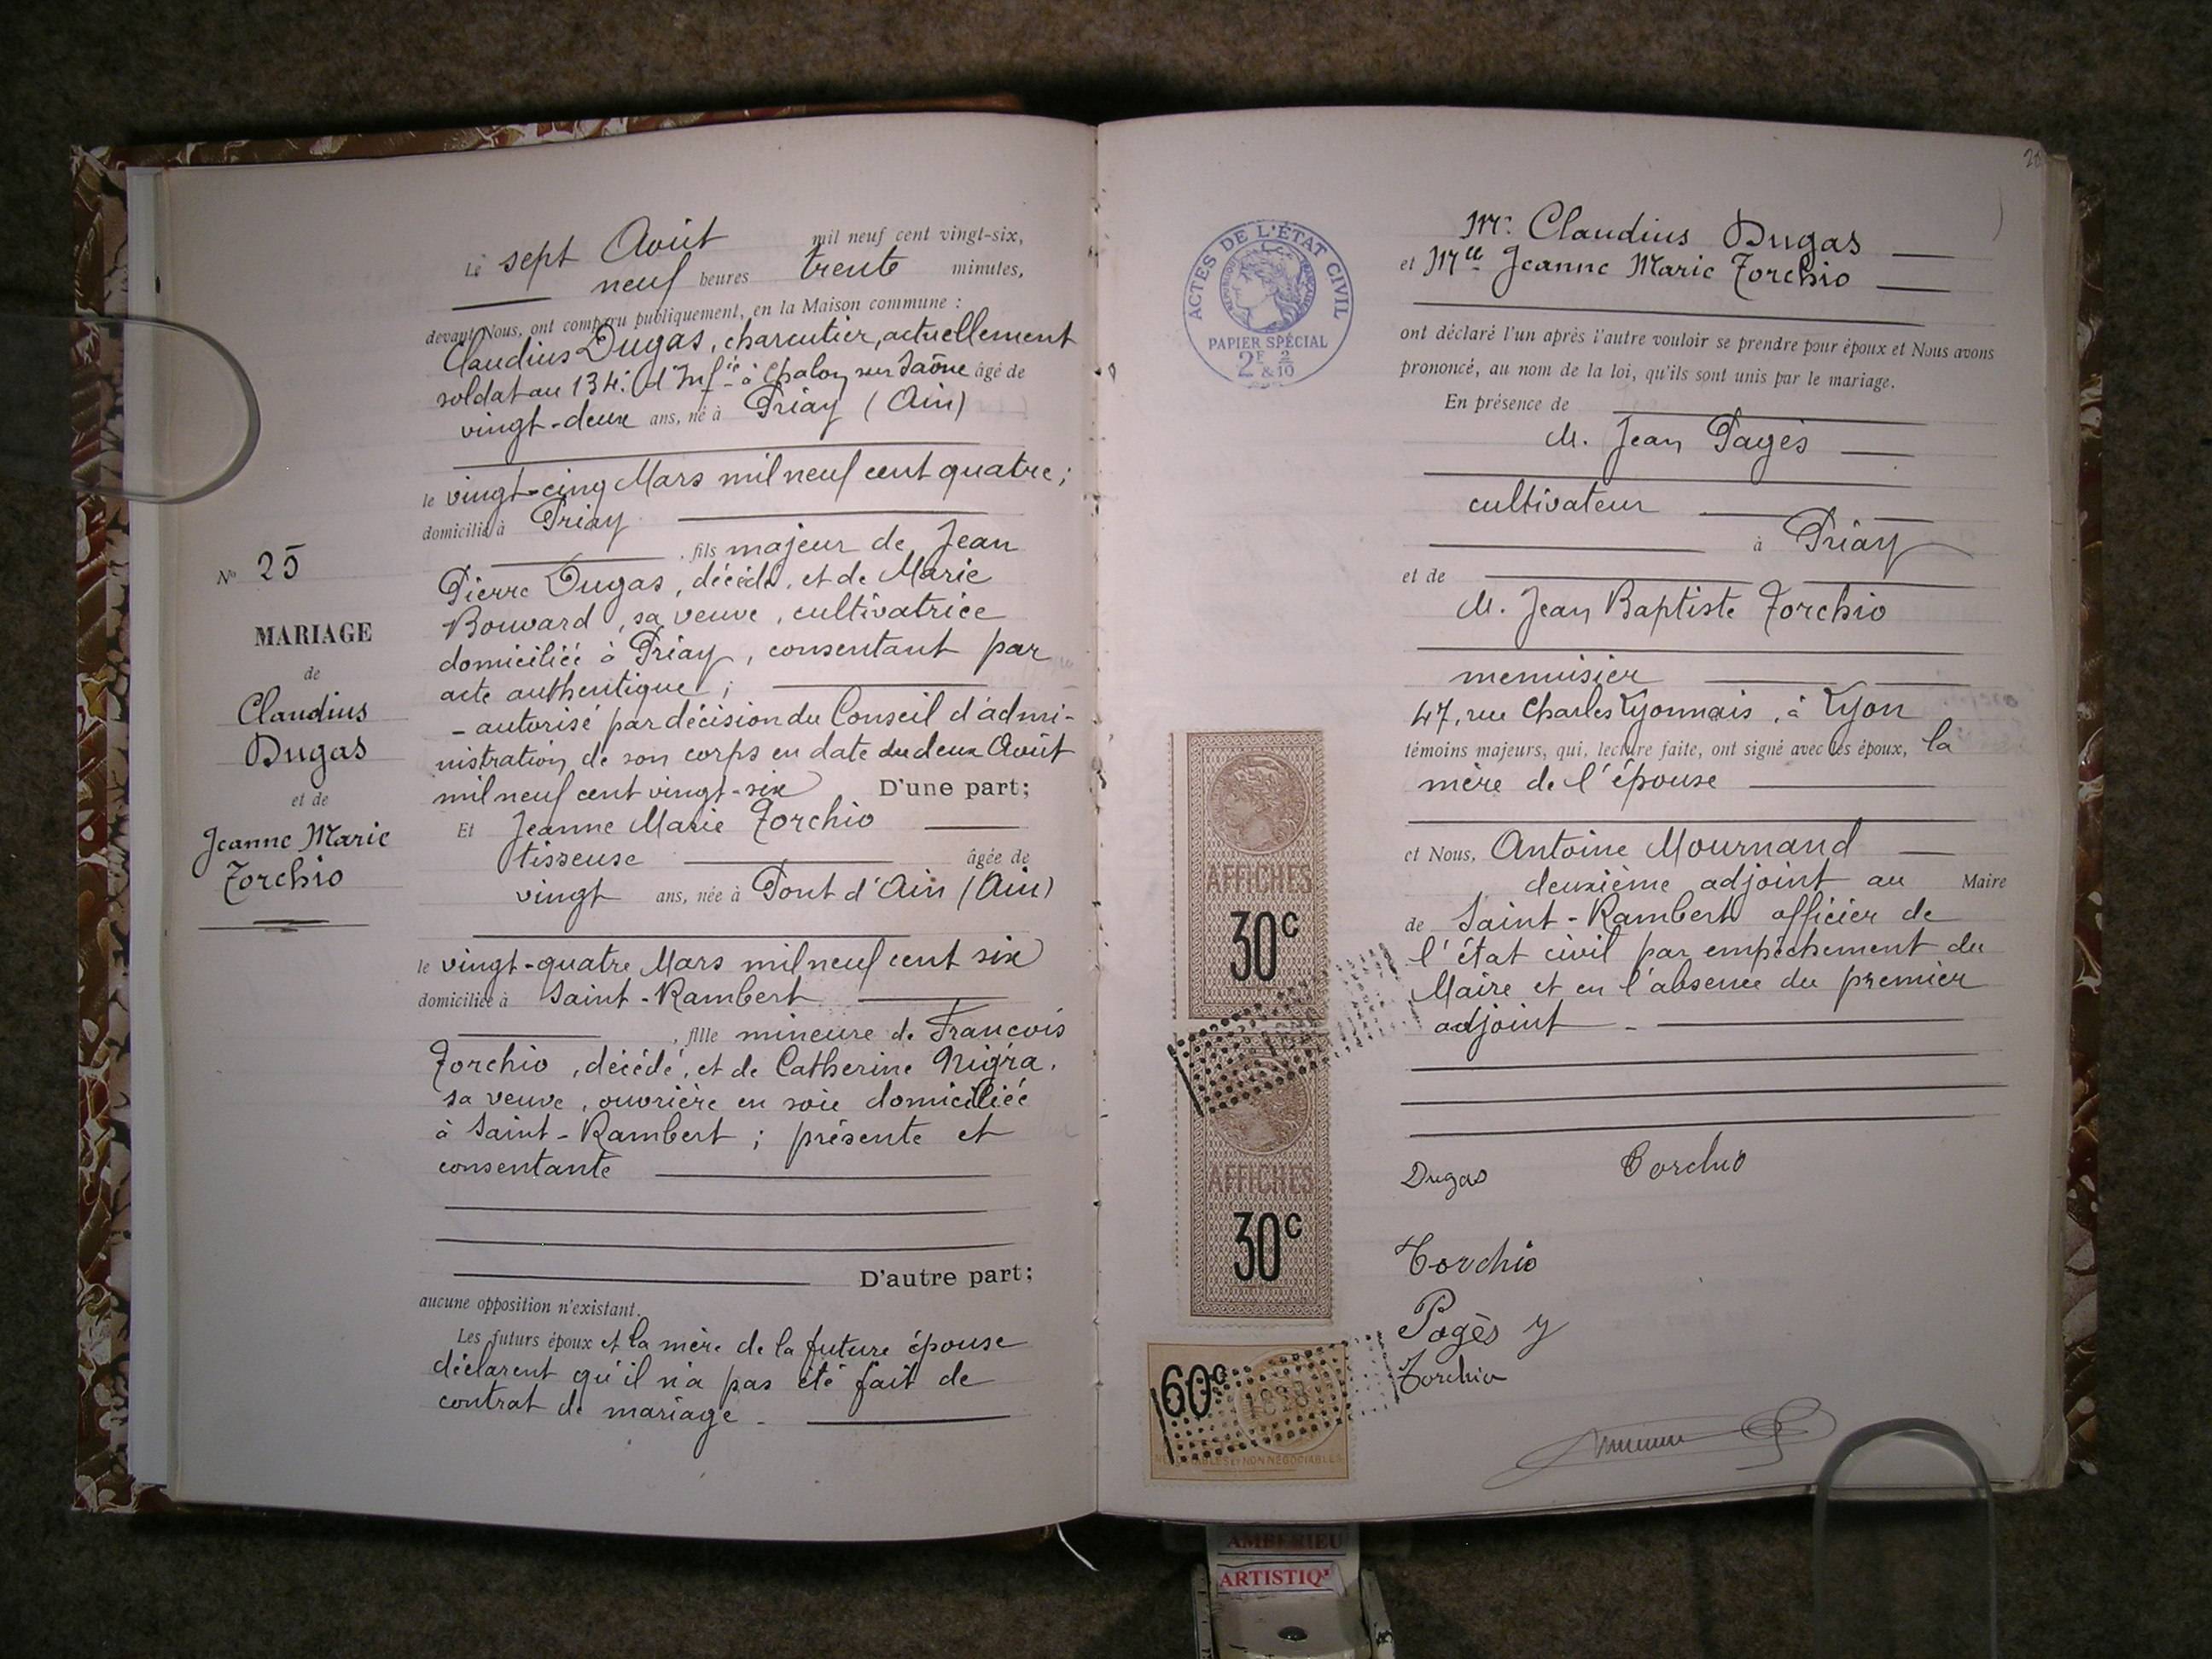 N° 25
MARIAGE
de
Claudius
Dugas
et de
Jeanne Marie
Torchio
Le sept Août mil neuf cent vingt-six,
neuf heures trente minutes,
devant Nous, ont comparu publiquement, en la Maison commune :
Claudius Dugas, charcutier, actuellement
soldat au 134e d'Infie à Chalon sur Saône âgé de
vingt-deux ans, né à Priay (Ain)
le vingt-cinq Mars mil neuf cent quatre;
domicilié à Priay
, fils majeur de Jean
Pierre Dugas, décédé, et de Marie
Bouvard, sa veuve, cultivatrice
domiciliée à Priay, consentant par
acte authentique ;
- autorisé par décision du Conseil d'admi-
nistration de son corps en date du deux Août
mil neuf cent vingt-six D'une part;
Et Jeanne Marie Torchio
tisseuse âgée de
vingt ans, née à Pont d'Ain (Ain)
le vingt-quatre Mars mil neuf cent six
domiciliée à Saint-Rambert
, fille mineure de Francois
Torchio, décédé, et de Catherine Nigra,
sa veuve, ouvrière en soie domiciliée
à Saint-Rambert ; présente et
consentante
D'autre part;
aucune opposition n'existant.
Les futurs époux et la mère de la future épouse
déclarent qu'il n'a pas été fait de
contrat de mariage -
ACTES DE L'ÉTAT CIVIL
PAPIER SPÉCIAL
2F & 2/10
AFFICHES
30c
AFFICHES
30c
60c
Mr. Claudius Dugas
et Mlle Jeanne Marie Torchio
ont déclaré l'un après l'autre vouloir se prendre pour époux et Nous avons
prononcé, au nom de la loi, qu'ils sont unis par le mariage.
En présence de
M. Jean Pagès
cultivateur
à Priay
et de
M. Jean Baptiste Torchio
menuisier
47, rue Charles Lyonnais, à Lyon
témoins majeurs, qui, lecture faite, ont signé avec les époux, la
mère de l'épouse
et Nous, Antoine Mournand
deuxième adjoint au Maire
de Saint-Rambert officier de
l'état civil par empêchement du
Maire et en l'absence du premier
adjoint -
Dugas Torchio
Torchio
Pagès
Torchio
AMBERIEU
ARTISTIQ